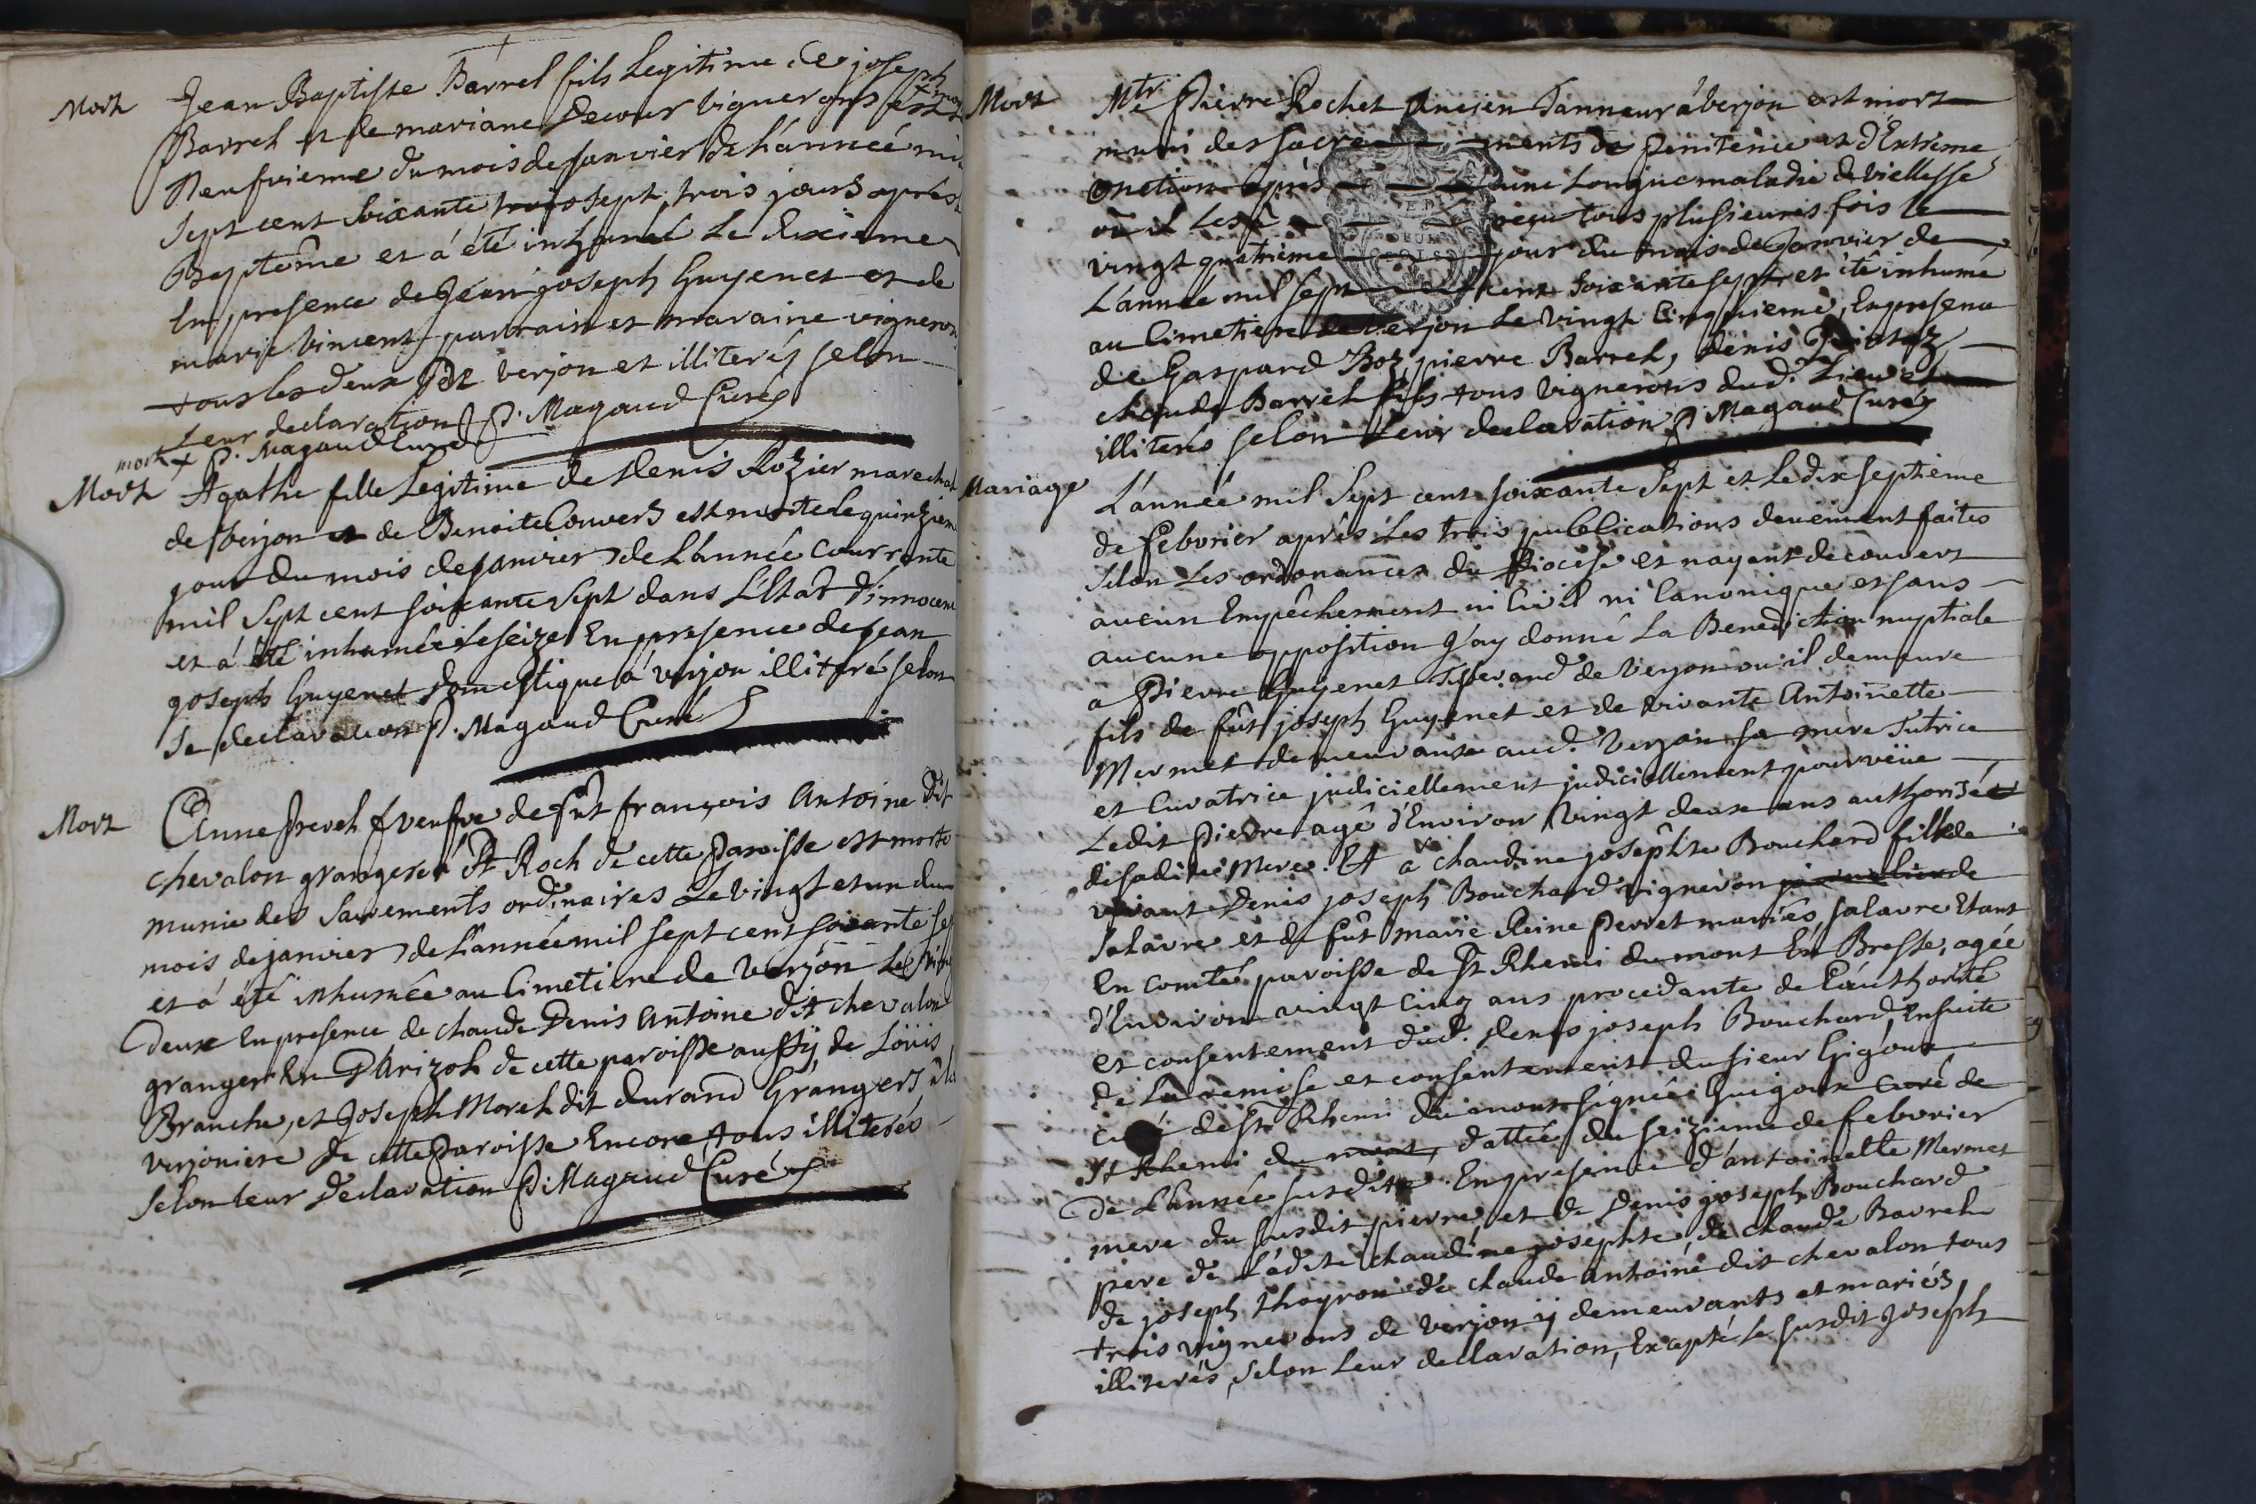 Mort Jean Baptiste Barrel fils Legitime de joseph
Barrel et de mariane Decour Vignerons est + mort
Neufvieme du mois de Janvier de L'année mil
Sept cent soixante sept, trois jours après
Baptême et a été inhumé Le dixieme
En presence de Jean joseph Guyenet et de
marie Vincent parrain et maraine vignerons
tous les deux de verjon et illiterés selon
Leur declaration P. Magaud Curé
mort + P. Magaud Curé
Mort Agathe fille Legitime de Denis Rozier marechal
de Verjon et de Benoite Couvers est morte le quinzieme
jour du mois de janvier de L'année courrante
mil Sept cent soixante Sept dans L'Etat d'innocence
et a été inhumée le seize En presence de jean
joseph Guyenet Domestique a verjon illiteré selon
sa declaration P. Magaud Curé
Mort Anne veufve de fût françois Antoine dit
chevalon granger á St Roch de cette Paroisse est morte
munie des Sacrements ordinaires Le vingt et un du
mois de janvier de L'année mil sept cent soixante sept
et a été inhumée au Cimetiere de Verjon Le vingt
Deux En presence de claude Denis Antoine dit chevalon
granger En de cette paroisse aussÿ de Loüis
Branche, et Joseph Morel dit durand Grangers à la
verjoniere de cette Paroisse Encore tous illiterés
Selon leur declaration P. Magaud Curé
Mort Mtre Pierre Rochet Ancien Tanneur à verjon est mort
muni des sacrements de Penitence et d'Extreme
Onction après une Longue maladie de viellesse
où il Les a reçu tous plusieurs fois le
vingt quatrieme jour du mois de Janvier de
L'année mil sept cent soixante sept et été inhumé
au Cimetiere de verjon Le vingt Cinquieme, En presence
de Gaspard Boz, pierre Barrel, Denis
claude Barrel fils tous vignerons dud. Lieu et
illiterés selon Leur declaration P. Magaud Curé
Mariage L'année mil Sept cent soixante Sept et Le dix septieme
de febvrier après Les trois publications deuëment faites
selon Les ordonances du Diocése et nayant decouvert
aucun Empêchement ni Civil ni Canonique et sans
aucune opposition J'ay donné La Benediction nuptiale
a Pierre Guyenet de Verjon ou il demeure
fils de fût joseph Guyenet et de vivante Antoinette
Mermet demeurante aud. Verjon sa mere Tutrice
et Curatrice judiciellement judiciellement pourvëüe
Ledit Pierre agé d'Environ Vingt deux ans authorisé
de sadite Mere. Et a claudine josephte Bouchard fille de
vivant Denis joseph Bouchard vigneron de
Salavre et de fût marie Reine Perret mariés, salavre Etant
En Comté paroisse de St Rhemi du mont En Bresse, agée
d'Environ vingt Cinq ans procedante de L'authorité
et consentement dud. Denis joseph Bouchard, Ensuite
de La remise et consentement du sieur Guigoux
curé de St Rhemi du mont signée Guigoux Curé de
St Rhemi du mont, dattée du seizieme de febvrier
de L'année susdite. En presence d'antoinette Mermet
mere du susdit pierre, et de Denis joseph Bouchard
pere de Ladite claudine josephte, de claude Barrel
de joseph thoyron de claude antoine dit chevalon tous
trois vignerons de verjon ÿ demeurants et mariés,
illiterés, selon Leur declaration, Excepté Le susdit Joseph